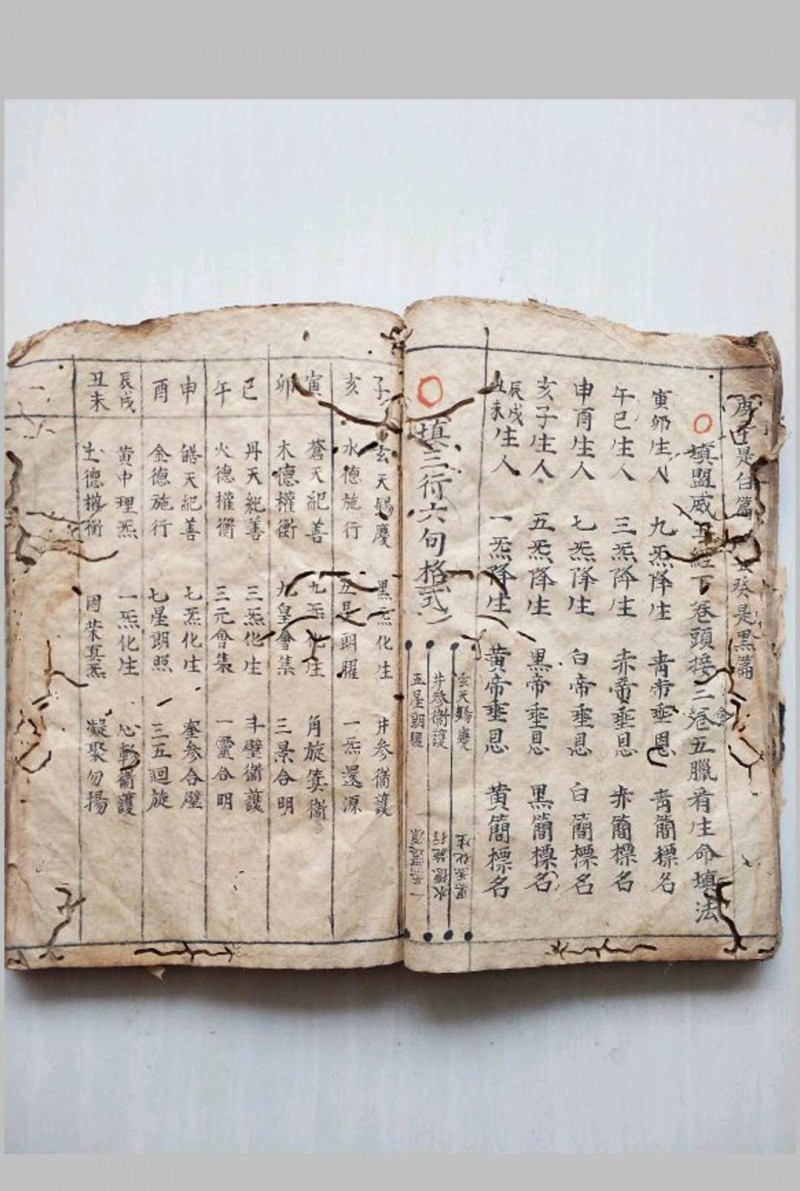 庚辛是白篇 壬癸是黑篇
填盟威五經下卷頭接三卷五臘齋生命填法
寅卯生人 九炁降生 青帝垂恩 青簡標名
午巳生人 三炁降生 赤帝垂恩 赤簡標名
申酉生人 七炁降生 白帝垂恩 白簡標名
亥子生人 五炁降生 黑帝垂恩 黑簡標名
辰戌丑未生人 一炁降生 黃帝垂恩 黃簡標名
填三行六句格式
玄天錫慶 黑炁化生
井參衛護 水德施行
五星朗耀 一炁還源
子 玄天錫慶 黑炁化生 井參衛護
亥 水德施行 五星朗耀 一炁還源
寅 蒼天紀善 九炁化生 角旋箕衛
卯 木德權衡 九皇會集 三景合明
巳 丹天紀善 三炁化生 斗壁衛護
午 火德權衡 三元會集 一靈合明
申 皓天紀善 七炁化生 奎參合璧
酉 金德施行 七星朗照 三五迴旋
辰戌 黃中理炁 一炁化生 心軫衛護
丑未 土德權衡 凝聚勿揚